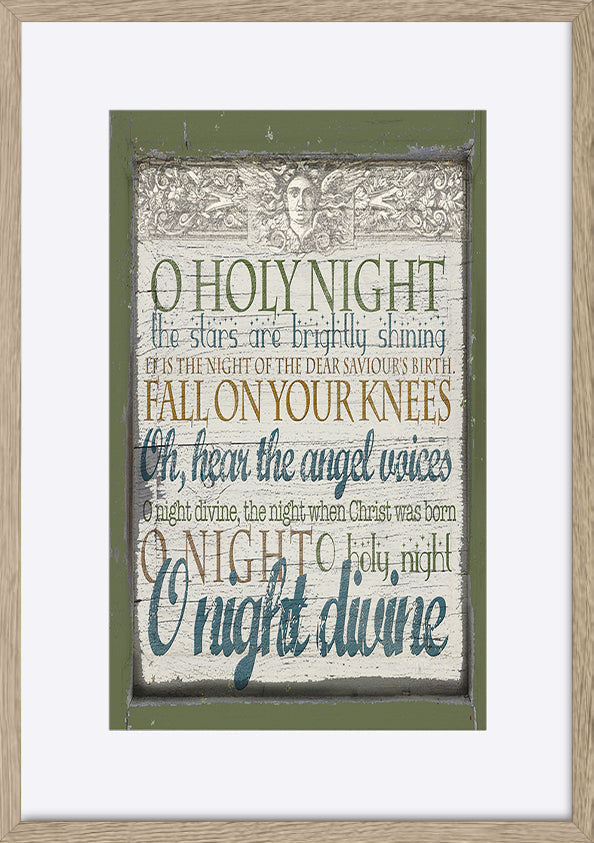 O HOLY NIGHT
the stars are brightly shining
IT IS THE NIGHT OF THE DEAR SAVIOUR'S BIRTH.
FALL ON YOUR KNEES
Oh, hear the angel voices
O night divine, the night when Christ was born
O NIGHT O holy night
O night divine